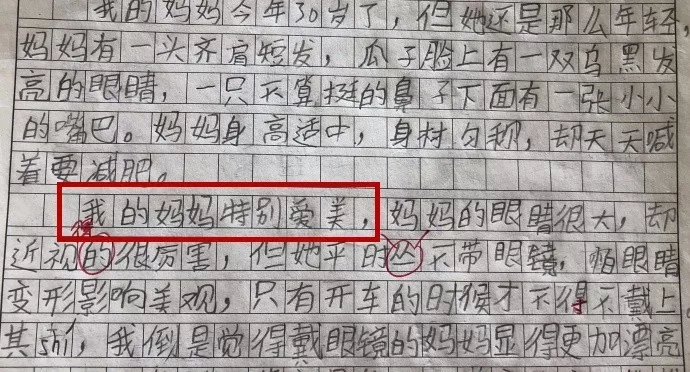 我的妈妈今年30岁了，但她还是那么年轻，
妈妈有一头齐肩短发，瓜子脸上有一双乌黑发
亮的眼睛，一只不算挺的鼻子下面有一张小小
的嘴巴。妈妈身高适中，身材匀称，却天天喊
着要减肥。
我的妈妈特别爱美，妈妈的眼睛很大，却
得
近视的很厉害，但她平时丛不带眼镜，怕眼睛
变形影响美观，只有开车的时候才不得不戴上。
其shí，我倒是觉得戴眼镜的妈妈显得更加漂亮